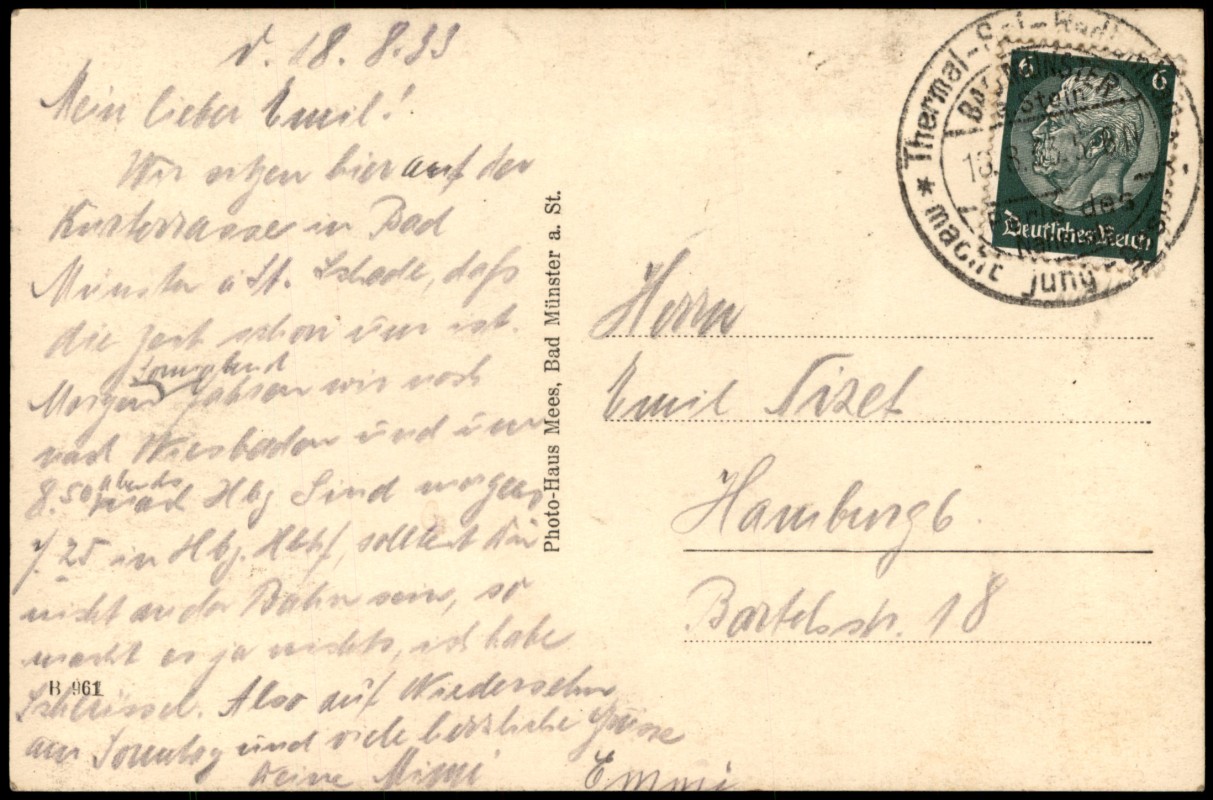 d. 18. 8. 33
Mein lieber Emil!
Wir sitzen hier auf der
Kurterrasse in Bad
Münster a St. Schade, daß
die Zeit schon um ist.
Sonnabend
Morgen fahren wir noch
nach Wiesbaden und um
abends
8.50 nach Hbg Sind morgens
7.25 in Hbg. Hbhf, solltest Du
nicht an der Bahn sein, so
macht es ja nichts, ich habe
Schlüssel. Also auf Wiedersehn
am Sonntag und viele herzliche Grüsse
Deine Mimi
Emmi
B 961
Photo-Haus Mees, Bad Münster a. St.
Thermal-
macht jung
BAD MÜNSTER
a Stein
18.8.
Perle des
6 6
Deutsches Reich
Herrn
Emil Nizet
Hamburg 6
Bartelsstr. 18